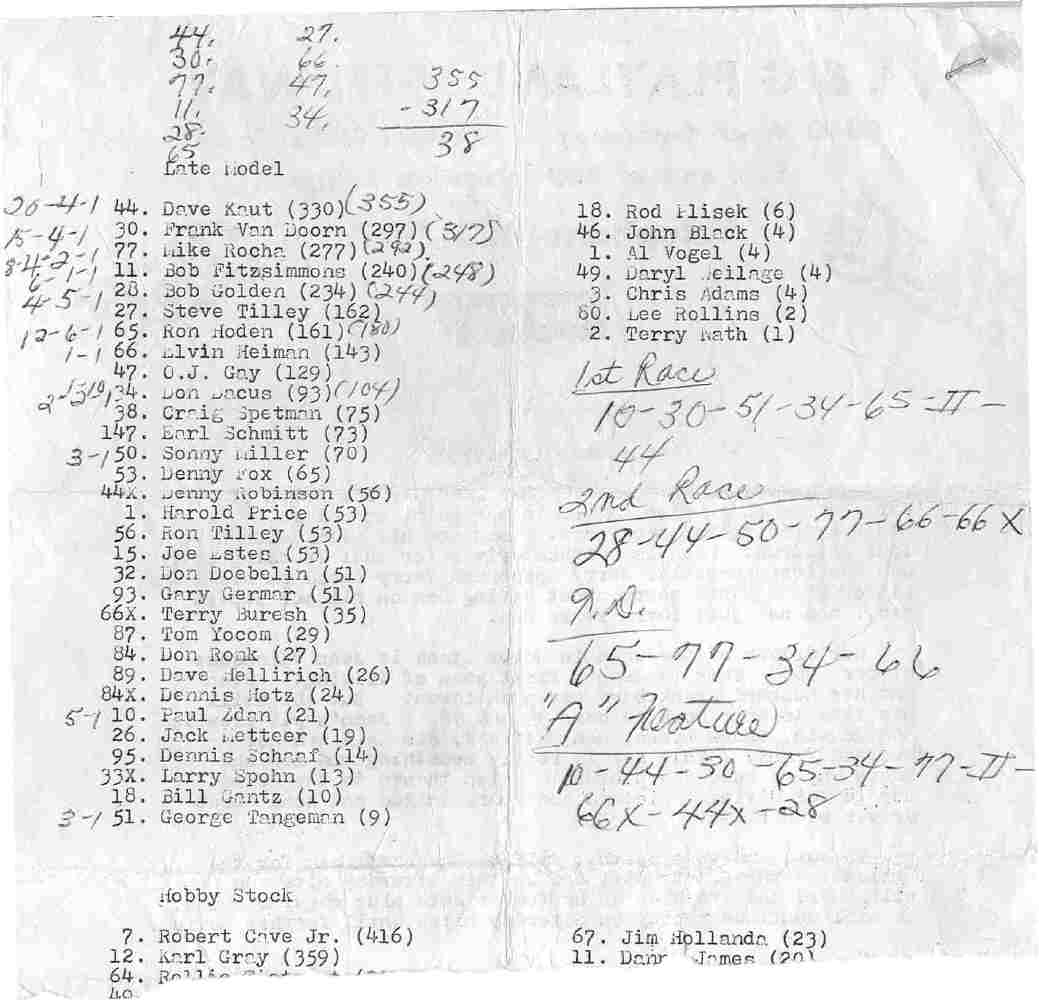 44. 27.
30. 66.
77. 47. 355
11. 34. - 317
28. 38
65
Late Model
26-4-1 44. Dave Kaut (330)(355)
15-4-1 30. Frank Van Doorn (297)(317)
8-4-2-1 77. Mike Rocha (277)(292).
6-1-1 11. Bob Fitzsimmons (240)(248)
4-5-1 28. Bob Golden (234)(244)
27. Steve Tilley (162)
12-6-1 65. Ron Hoden (161)(180)
1-1 66. Elvin Heiman (143)
47. O.J. Gay (129)
34. Don Dacus (93)(104)
38. Craig Spetman (75)
147. Earl Schmitt (73)
3-1 50. Sonny Miller (70)
53. Denny Fox (65)
44X. Denny Robinson (56)
1. Harold Price (53)
56. Ron Tilley (53)
15. Joe Estes (53)
32. Don Doebelin (51)
93. Gary Germar (51)
66X. Terry Buresh (35)
87. Tom Yocom (29)
84. Don Ronk (27)
89. Dave Hellirich (26)
84X. Dennis Hotz (24)
5-1 10. Paul Zdan (21)
26. Jack Ketteer (19)
95. Dennis Schaaf (14)
33X. Larry Spohn (13)
18. Bill Gantz (10)
3-1 51. George Tangeman (9)
18. Rod Flisek (6)
46. John Black (4)
1. Al Vogel (4)
49. Daryl (4)
3. Chris Adams (4)
60. Lee Rollins (2)
2. Terry Nath (1)
1st Race
10-30-51-34-65-II-
44
2nd Race
28-44-50-77-66-66X
T.D.
65-77-34-66
"A" Feature
10-44-30-65-34-77-II-
66X-44X-28
Hobby Stock
7. Robert Cave Jr. (416)
12. Karl Gray (359)
64.
67. Jim Hollanda (23)
11. James (20)